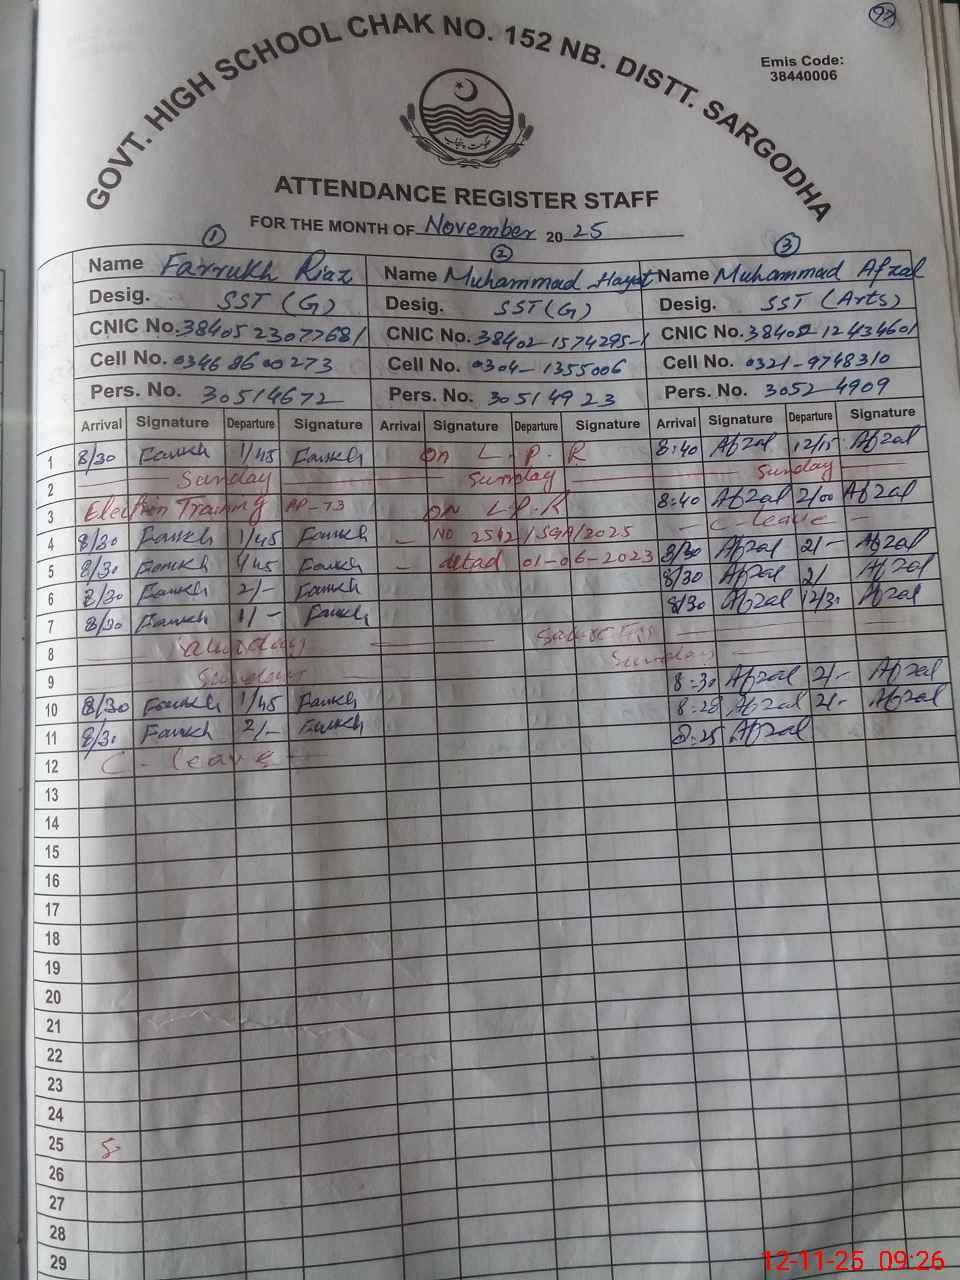 97
GOVT. HIGH SCHOOL CHAK NO. 152 NB. DISTT. SARGODHA
Emis Code:
38440006
ATTENDANCE REGISTER STAFF
FOR THE MONTH OF November 2025
1 2 3
Name Farrukh Riaz Name Muhammad Hayat Name Muhammad Afzal
Desig. SST (G) Desig. SST (G) Desig. SST (Arts)
CNIC No. 3840523077681 CNIC No. 38402-1574295-1 CNIC No. 3840212434601
Cell No. 0346 8600273 Cell No. 0304-1355006 Cell No. 0321-9748310
Pers. No. 30514672 Pers. No. 30514923 Pers. No. 30524909
Arrival Signature Departure Signature Arrival Signature Departure Signature Arrival Signature Departure Signature
1 8/30 Farrukh 1/45 Farrukh On L.P.R 8:40 Afzal 12/15 Afzal
2 Sunday Sunday Sunday
3 Election Training PP-73 ON L.P.R 8:40 Afzal 2/00 Afzal
4 8/30 Farrukh 1/45 Farrukh - NO 2512/SGA/2025 - C-leave -
5 8/30 Farrukh 1/45 Farrukh - dated 01-06-2023 8/30 Afzal 2/- Afzal
6 8/30 Farrukh 2/- Farrukh 8/30 Afzal 2/ Afzal
7 8/30 Farrukh 1/- Farrukh 8/30 Afzal 12/30 Afzal
8 Saturday
9 Sunday Sunday
10 8/30 Farrukh 1/45 Farrukh 8:30 Afzal 2/- Afzal
11 8/30 Farrukh 2/- Farrukh 8:28 Afzal 2/- Afzal
12 C-leave 8:25 Afzal
13
14
15
16
17
18
19
20
21
22
23
24
25
26
27
28
29
12-11-25 09:26